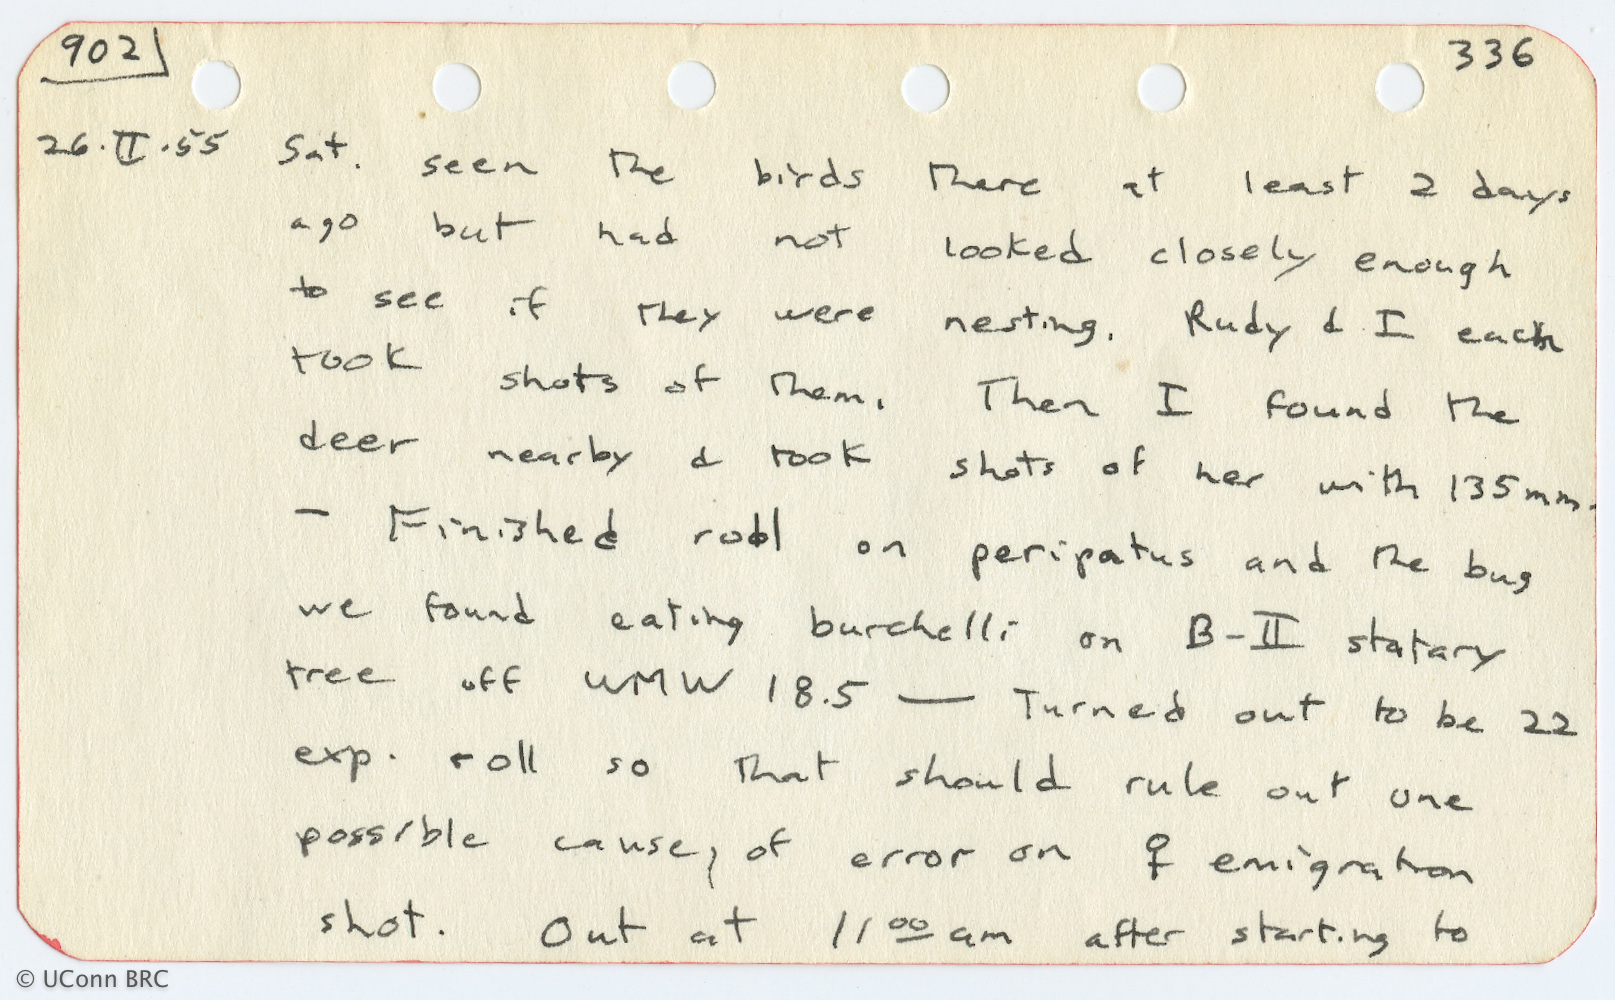 902 336
26.II.55 Sat. seen the birds there at least 2 days
ago but had not looked closely enough
to see if they were nesting. Rudy & I each
took shots of them. Then I found the
deer nearby & took shots of her with 135mm.
— Finished roll on peripatus and the bug
we found eating burchelli on B-II statary
tree off WMW 18.5 — Turned out to be 22
exp. roll so that should rule out one
possible cause, of error on ♀ emigration
shot. Out at 11 00 am after starting to
© UConn BRC